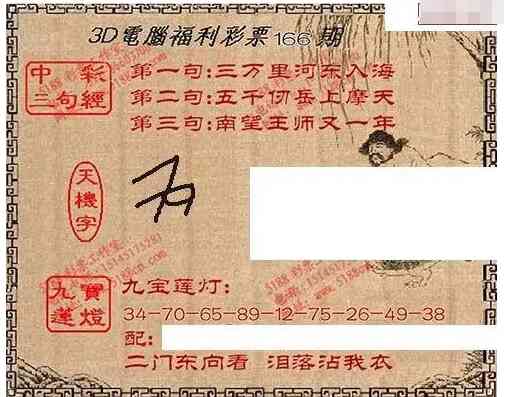 3D電腦福利彩票166期
中彩
三句經
第一句:三万里河东入海
第二句:五千仞岳上摩天
第三句:南望王师又一年
天機字
九寶
蓮燈
九宝莲灯:
34-70-65-89-12-75-26-49-38
配:
二门东向看 泪落沾我衣